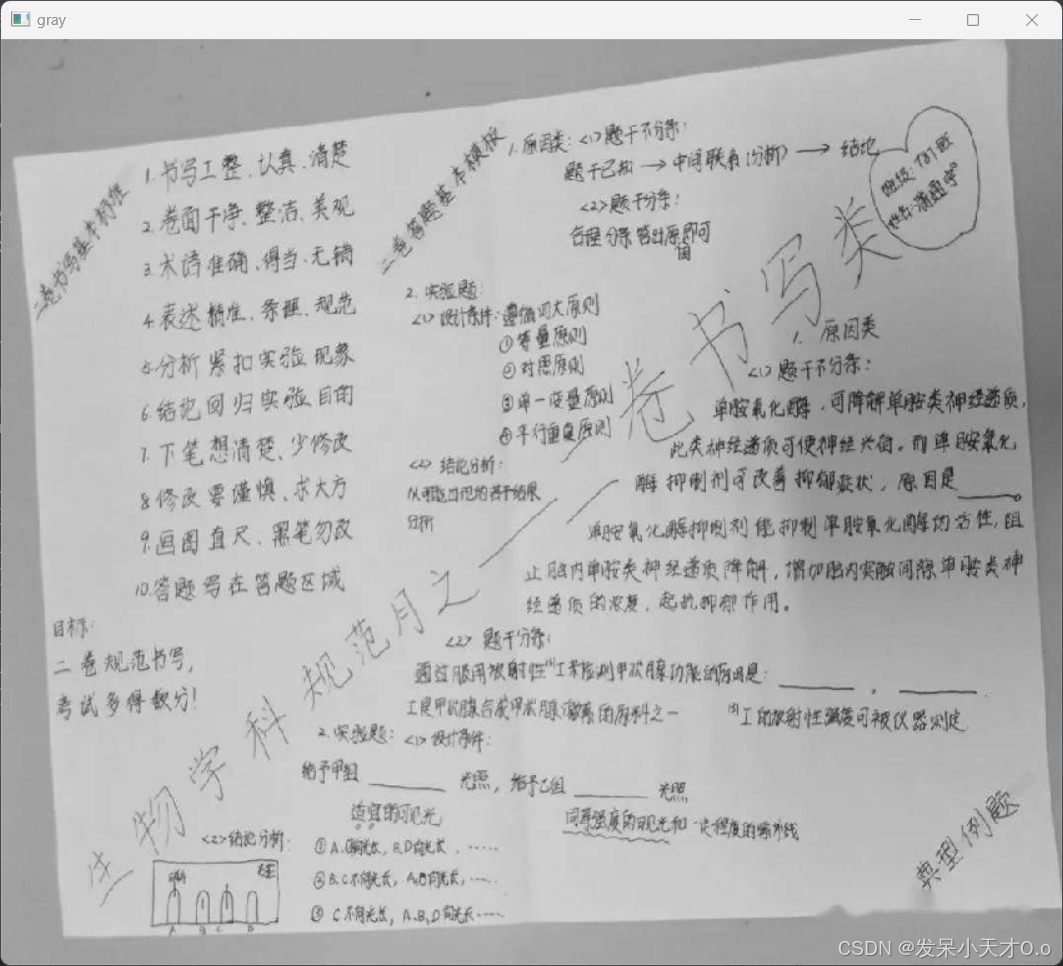 gray
二卷书写基本标准
1. 书写工整、认真、清楚
2. 卷面干净、整洁、美观
3. 术语准确、得当、无错
4. 表述精准、条理、规范
5. 分析紧扣实验现象
6. 结论回归实验目的
7. 下笔想清楚、少修改
8. 修改要谨慎、求大方
9. 画图直尺、黑笔勿改
10. 答题写在答题区域
目标:
二卷规范书写,
考试多得数分!
二卷答题基本模板
1. 原因类: <1>题干不分条:
题干已知 → 中间联系(分析) → 结论
<2>题干分条:
合理分条答出原因即可
2. 实验题:
<1>设计条件: 遵循四大原则
①等量原则
②对照原则
③单一变量原则
④平行重复原则
<2> 结论分析:
分析
班级:
姓名:
生物学科规范月之——二卷书写类
1. 原因类
<1>题干不分条:
单胺氧化酶,可降解单胺类神经递质,
此类神经递质可使神经兴奋。而单胺氧化
酶抑制剂可改善抑郁症状,原因是______。
单胺氧化酶抑制剂能抑制单胺氧化酶的活性,阻
止脑内单胺类神经递质降解,增加脑内突触间隙单胺类神
经递质的浓度,起抗抑郁作用。
<2> 题干分条:
通过服用放射性¹³¹I来检测甲状腺功能的原因是: ______, ______.
I是甲状腺合成甲状腺激素的原料之一
¹³¹I的放射性强度可被仪器测定.
2. 实验题: <1>设计条件:
给予甲组 ______ 光照, 给予乙组 ______ 光照
适宜的可见光
同等强度的可见光和一定程度的紫外线
<2>结论分析:
A B C D
①A.向光长, B.D向光长, ……
②B.C不向光长, A.D向光长, ……
③C不向光长, A.B.D向光长……
典型例题
CSDN @发呆小天才O.o